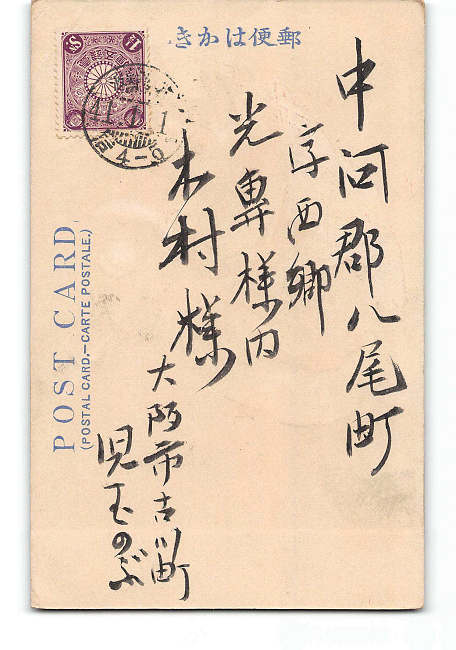 郵便はかき
中河郡八尾町
字西郷
光専様内
木村様
大阪市古川町
児玉のぶ
POST CARD
(POSTAL CARD.—CARTE POSTALE.)
1½ Sⁿ
41